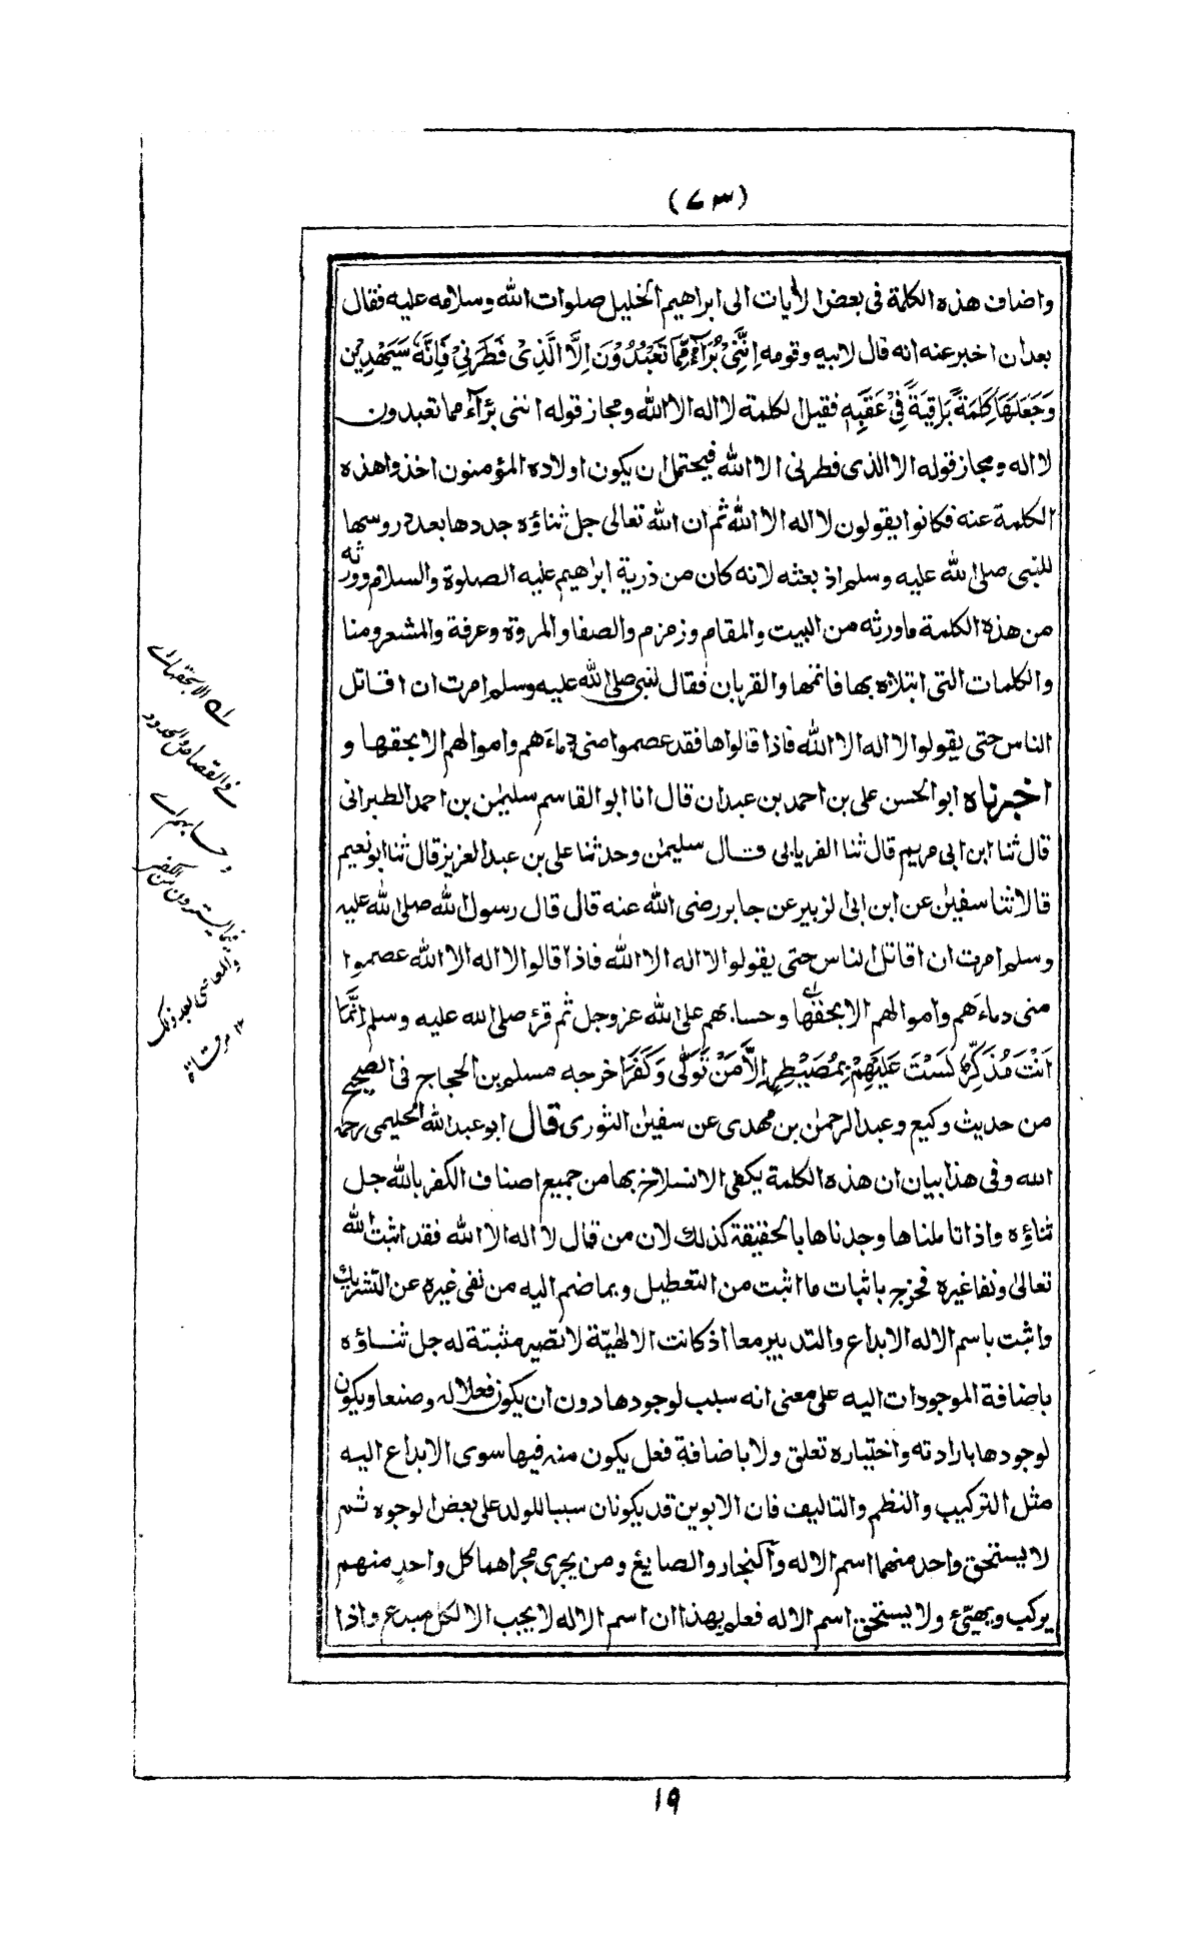 (٧٣)
واضاف هذه الكلمة فى بعض الايات الى ابراهيم الخليل صلوات الله وسلامه عليه فقال
بعد ان اخبر عنه انه قال لابيه وقومه اِنَّنِىْ بُرَآءٌ مِّمَّا تَعْبُدُوْنَ اِلَّا الَّذِىْ فَطَرَنِىْ فَاِنَّهٗ سَيَهْدِيْنِ
وَجَعَلَهَا كَلِمَةً بَاقِيَةً فِىْ عَقِبِهٖ فقيل الكلمة لا اله الا الله ومجاز قوله اننى برآء مما تعبدون
لا اله ومجاز قوله الا الذى فطرنى الا الله فيحتمل ان يكون اولاده المؤمنون اخذوا هذه
الكلمة عنه فكانوا يقولون لا اله الا الله ثم ان الله تعالى جل ثناؤه جددها بعد دروسها
للنبى صلى الله عليه وسلم اذ بعثه لانه كان من ذرية ابراهيم عليه الصلوة والسلام وورثه
من هذه الكلمة ما ورثه من البيت والمقام وزمزم والصفا والمروة وعرفة والمشعر ومنا
والكلمات التى ابتلاه بها فاتمها والقربان فقال لنبى صلى الله عليه وسلم امرت ان اقاتل
الناس حتى يقولوا لا اله الا الله فاذا قالوها فقد عصموا منى دماءهم واموالهم الا بحقها و
اخبرناه ابو الحسن على بن احمد بن عبدان قال انا ابو القاسم سليمن بن احمد الطبرانى
قال ثنا ابن ابى مريم قال ثنا الفريابى قال سليمن وحدثنا على بن عبد العزيز قال ثنا ابو نعيم
قالا ثنا سفيٰن عن ابن ابى الزبير عن جابر رضى الله عنه قال قال رسول الله صلى الله عليه
وسلم امرت ان اقاتل الناس حتى يقولوا لا اله الا الله فاذا قالوا لا اله الا الله عصموا
منى دماءهم واموالهم الا بحقها وحسابهم على الله عز وجل ثم قرأ صلى الله عليه وسلم اِنَّمَا
اَنْتَ مُذَكِّرٌ لَسْتَ عَلَيْهِمْ بِمُصَيْطِرٍ اِلَّا مَنْ تَوَلّٰى وَكَفَرَ اخرجه مسلم بن الحجاج فى الصحيح
من حديث وكيع وعبد الرحمٰن بن مهدى عن سفيٰن الثورى قال ابو عبد الله الحليمى رحمه
الله وفى هذا بيان ان هذه الكلمة يكفى الانسلاخ بها من جميع اصناف الكفر بالله جل
ثناؤه واذا تاملناها وجدناها بالحقيقة كذلك لان من قال لا اله الا الله فقد اثبت الله
تعالىٰ ونفا غيره فخرج باثبات ما اثبت من التعطيل وبما ضم اليه من نفى غيره عن التشريك
واثبت باسم الاله الابداع والتدبير معا اذ كانت الالهيّة لا تصير مثبتة له جل ثناؤه
باضافة الموجودات اليه على معنى انه سبب لوجودها دون ان يكون فعلا له وصنعا ويكون
لوجودها بارادته واختياره تعلق ولا باضافة فعل يكون منه فيها سوى الابداع اليه
مثل التركيب والنظم والتاليف فان الابوين قد يكونان سببا للولد على بعض الوجوه ثم
لا يستحق واحد منهما اسم الاله والنجار والصايغ ومن يجرى مجراهما كل واحدٍ منهم
يركب ويهيّئ ولا يستحق اسم الاله فعلم بهذا ان اسم الاله لا يجب الا لكل مبدع واذا
ك الا بحقها اے
فى القصاص والحدود
وحسابهم اے
فيما يسترون من الكفر
والمعاصى بعد ذلك
١٢ مرقاة
١٩